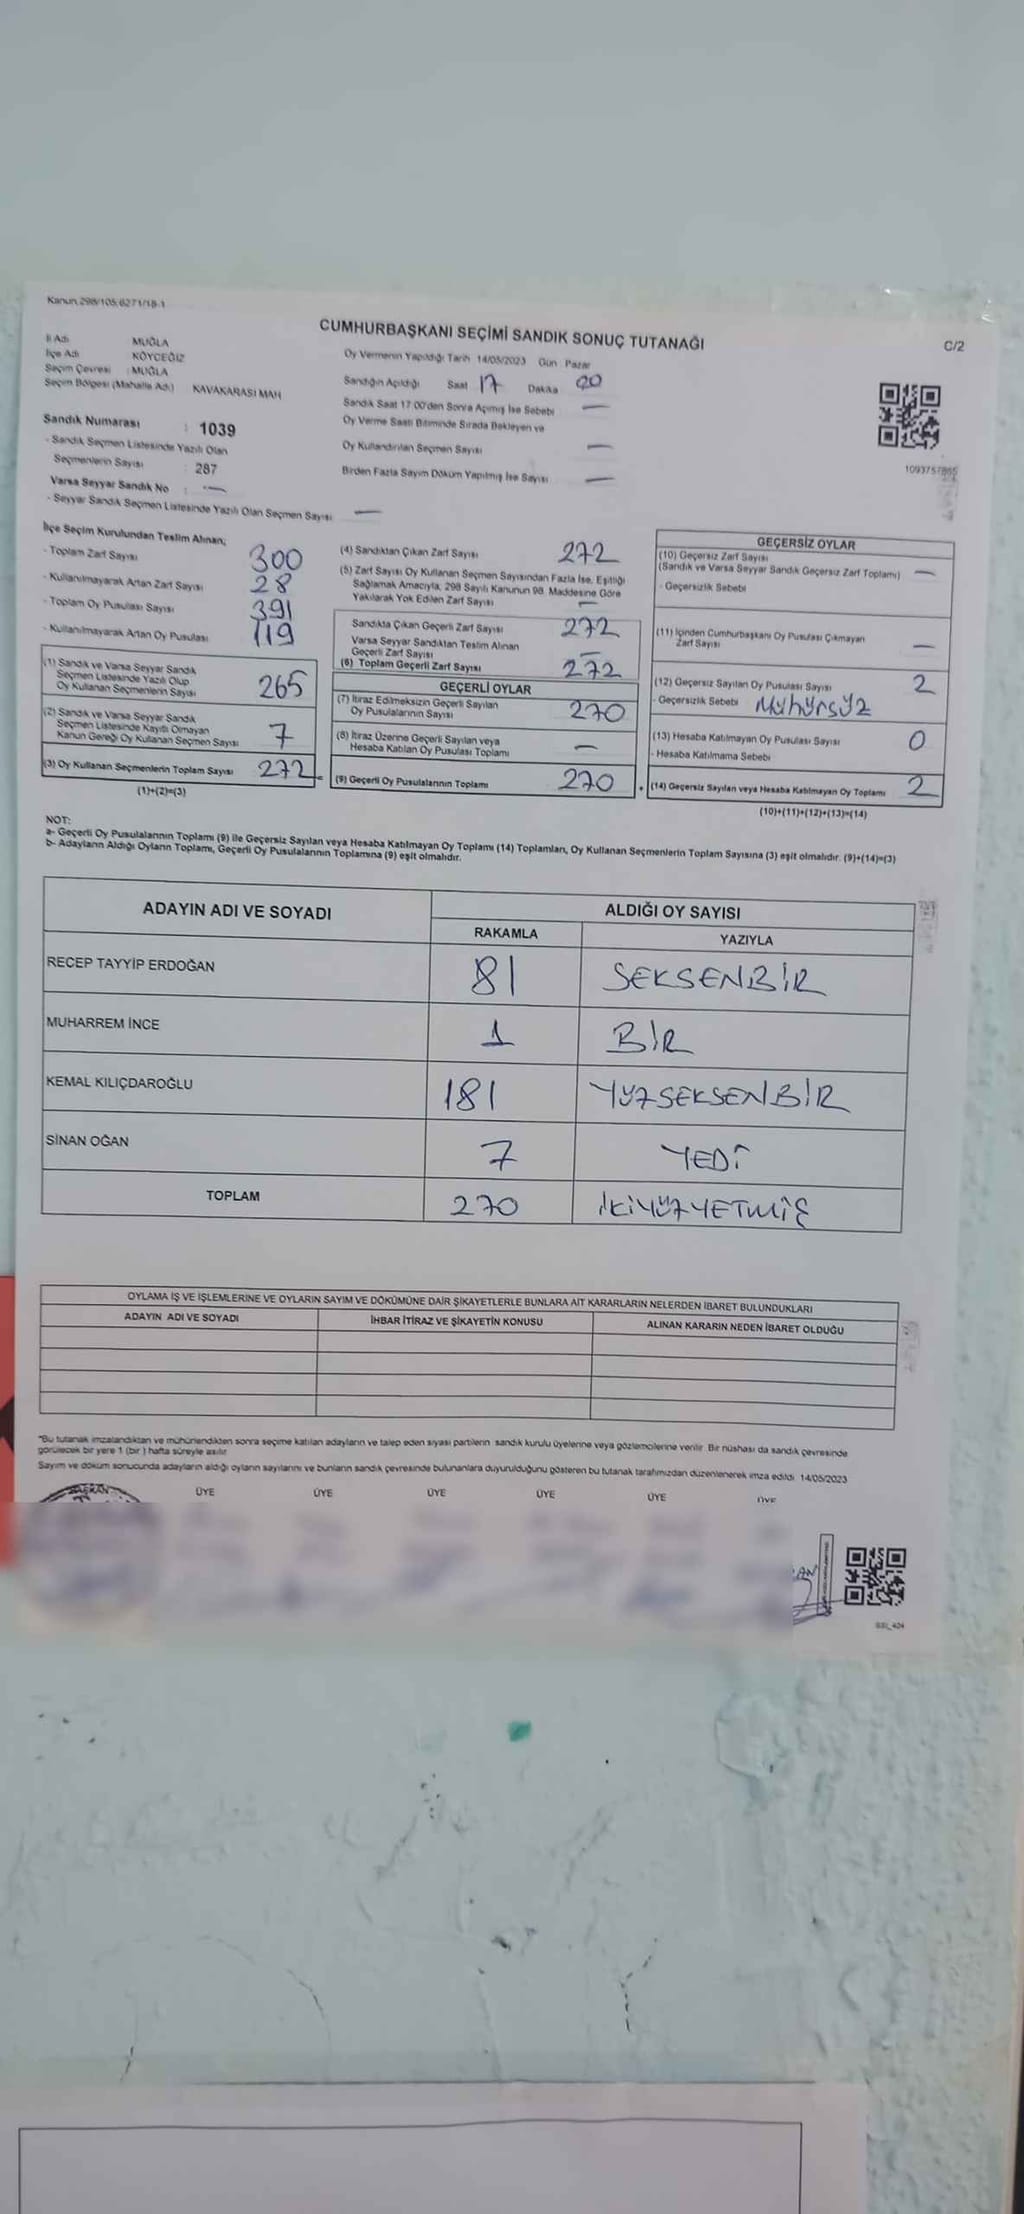 Kanun 298/105;6271/18-1
CUMHURBAŞKANI SEÇİMİ SANDIK SONUÇ TUTANAĞI
C/2
İl Adı : MUĞLA
İlçe Adı : KÖYCEĞİZ
Seçim Çevresi : MUĞLA
Seçim Bölgesi (Mahalle Adı) : KAVAKARASI MAH
Sandık Numarası : 1039
- Sandık Seçmen Listesinde Yazılı Olan
Seçmenlerin Sayısı : 287
Varsa Seyyar Sandık No : —
- Seyyar Sandık Seçmen Listesinde Yazılı Olan Seçmen Sayısı —
Oy Vermenin Yapıldığı Tarih 14/05/2023 Gün Pazar
Sandığın Açıldığı Saat 17 Dakika 00
Sandık Saat 17:00'den Sonra Açımış İse Sebebi —
Oy Verme Saati Bitiminde Sırada Bekleyen ve
Oy Kullandırılan Seçmen Sayısı —
Birden Fazla Sayım Döküm Yapılmış İse Sayısı —
İlçe Seçim Kurulundan Teslim Alınan;
- Toplam Zarf Sayısı 300
- Kullanılmayarak Artan Zarf Sayısı 28
- Toplam Oy Pusulası Sayısı 391
- Kullanılmayarak Artan Oy Pusulası 119
(1) Sandık ve Varsa Seyyar Sandık
Seçmen Listesinde Yazılı Olup
Oy Kullanan Seçmenlerin Sayısı 265
(2) Sandık ve Varsa Seyyar Sandık
Seçmen Listesinde Kayıtlı Olmayan
Kanun Gereği Oy Kullanan Seçmen Sayısı 7
(3) Oy Kullanan Seçmenlerin Toplam Sayısı 272
(1)+(2)=(3)
(4) Sandıktan Çıkan Zarf Sayısı 272
(5) Zarf Sayısı Oy Kullanan Seçmen Sayısından Fazla İse, Eşitliği
Sağlamak Amacıyla, 298 Sayılı Kanunun 98. Maddesine Göre
Yakılarak Yok Edilen Zarf Sayısı —
Sandıkta Çıkan Geçerli Zarf Sayısı 272
Varsa Seyyar Sandıktan Teslim Alınan
Geçerli Zarf Sayısı —
(6) Toplam Geçerli Zarf Sayısı 272
GEÇERLİ OYLAR
(7) İtiraz Edilmeksizin Geçerli Sayılan
Oy Pusulalarının Sayısı 270
(8) İtiraz Üzerine Geçerli Sayılan veya
Hesaba Katılan Oy Pusulası Toplamı —
(9) Geçerli Oy Pusulalarının Toplamı 270
GEÇERSİZ OYLAR
(10) Geçersiz Zarf Sayısı
(Sandık ve Varsa Seyyar Sandık Geçersiz Zarf Toplamı) —
- Geçersizlik Sebebi
(11) İçinden Cumhurbaşkanı Oy Pusulası Çıkmayan
Zarf Sayısı —
(12) Geçersiz Sayılan Oy Pusulası Sayısı 2
- Geçersizlik Sebebi Mühürsüz
(13) Hesaba Katılmayan Oy Pusulası Sayısı 0
- Hesaba Katılmama Sebebi
(14) Geçersiz Sayılan veya Hesaba Katılmayan Oy Toplamı 2
(10)+(11)+(12)+(13)=(14)
NOT:
a- Geçerli Oy Pusulalarının Toplamı (9) ile Geçersiz Sayılan veya Hesaba Katılmayan Oy Toplamı (14) Toplamları, Oy Kullanan Seçmenlerin Toplam Sayısına (3) eşit olmalıdır. (9)+(14)=(3)
b- Adayların Aldığı Oyların Toplamı, Geçerli Oy Pusulalarının Toplamına (9) eşit olmalıdır.
ADAYIN ADI VE SOYADI ALDIĞI OY SAYISI
RAKAMLA YAZIYLA
RECEP TAYYİP ERDOĞAN 81 SEKSENBİR
MUHARREM İNCE 1 BİR
KEMAL KILIÇDAROĞLU 181 YÜZSEKSENBİR
SİNAN OĞAN 7 YEDİ
TOPLAM 270 İKİYÜZYETMİŞ
OYLAMA İŞ VE İŞLEMLERİNE VE OYLARIN SAYIM VE DÖKÜMÜNE DAİR ŞİKAYETLERLE BUNLARA AİT KARARLARIN NELERDEN İBARET BULUNDUKLARI
ADAYIN ADI VE SOYADI İHBAR İTİRAZ VE ŞİKAYETİN KONUSU ALINAN KARARIN NEDEN İBARET OLDUĞU
"Bu tutanak imzalandıktan ve mühürlendikten sonra seçime katılan adayların ve talep eden siyasi partilerin sandık kurulu üyelerine veya gözlemcilerine verilir. Bir nüshası da sandık çevresinde
görülecek bir yere 1 (bir ) hafta süreyle asılır
Sayım ve döküm sonucunda adayların aldığı oyların sayılarını ve bunların sandık çevresinde bulunanlara duyurulduğunu gösteren bu tutanak tarafımızdan düzenlenerek imza edildi 14/05/2023
BAŞKAN ÜYE ÜYE ÜYE ÜYE ÜYE ÜYE